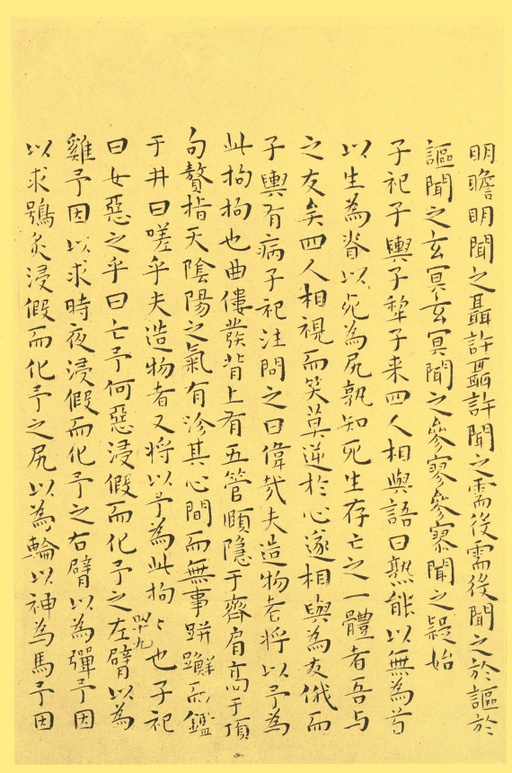 明瞻明聞之聶許聶許聞之需後需後聞之於謳於
謳聞之玄冥玄冥聞之參寥參寥聞之疑始
子祀子輿子犂子来四人相與語曰孰能以無為首
以生為脊以死為尻孰知死生存亡之一體者吾与
之友矣四人相視而笑莫逆於心遂相與為友俄而
子輿有病子祀往問之曰偉哉夫造物者将以予為
此拘拘也曲僂發背上有五管頤隱于齊肩高于頂
句贅指天陰陽之氣有沴其心間而無事跰𨇤而鑑
于井曰嗟乎夫造物者又将以予為此拘〻也子祀
曰女惡之乎曰亡予何惡浸假而化予之左臂以為
雞予因以求時夜浸假而化予之右臂以為彈予因
以求鴞炙浸假而化予之尻以為輪以神為馬予因